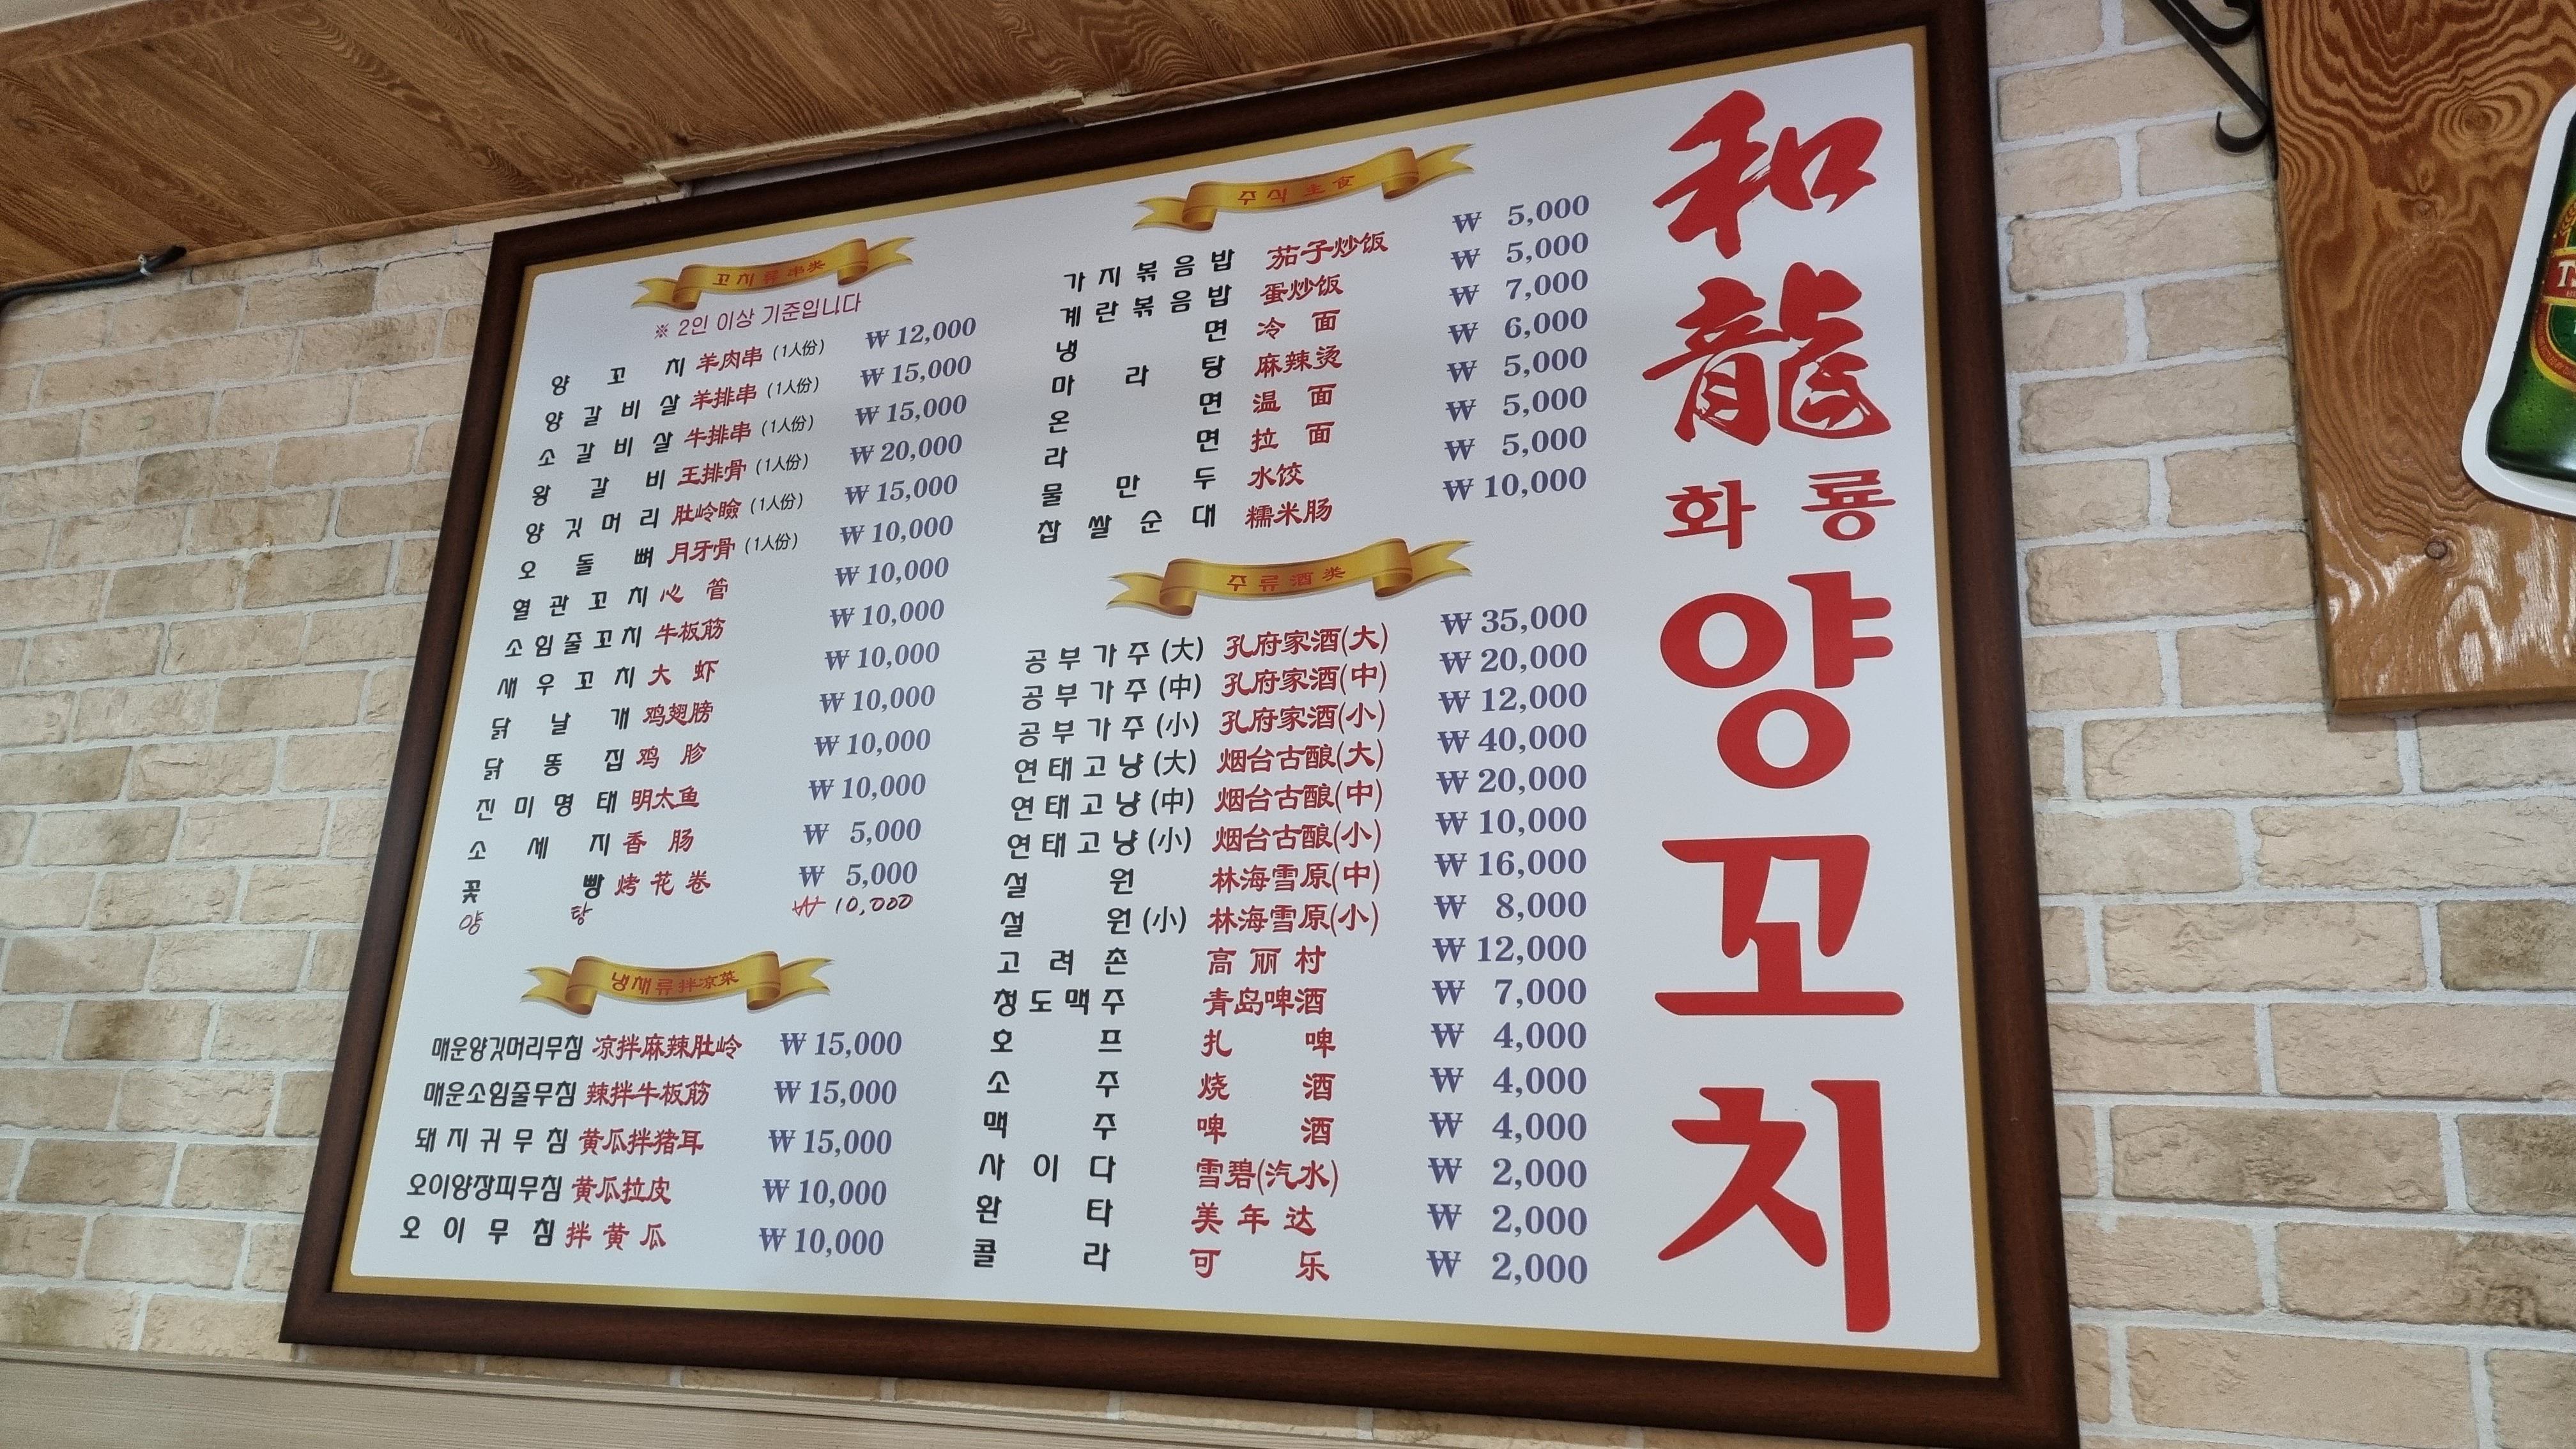 꼬치류 串类
※ 2인 이상 기준입니다
양꼬치 羊肉串 (1人份) ₩ 12,000
양갈비살 羊排串 (1人份) ₩ 15,000
소갈비살 牛排串 (1人份) ₩ 15,000
왕갈비 王排骨 (1人份) ₩ 20,000
양깃머리 肚岭瞼 (1人份) ₩ 15,000
오돌뼈 月牙骨 (1人份) ₩ 10,000
혈관꼬치 心管 ₩ 10,000
소힘줄꼬치 牛板筋 ₩ 10,000
새우꼬치 大虾 ₩ 10,000
닭날개 鸡翅膀 ₩ 10,000
닭똥집 鸡胗 ₩ 10,000
진미명태 明太鱼 ₩ 10,000
소세지 香肠 ₩ 5,000
꽃빵 烤花卷 ₩ 5,000
양탕 ₩ 10,000
냉채류 拌凉菜
매운양깃머리무침 凉拌麻辣肚岭 ₩ 15,000
매운소힘줄무침 辣拌牛板筋 ₩ 15,000
돼지귀무침 黄瓜拌猪耳 ₩ 15,000
오이양장피무침 黄瓜拉皮 ₩ 10,000
오이무침 拌黄瓜 ₩ 10,000
주식 主食
가지볶음밥 茄子炒饭 ₩ 5,000
계란볶음밥 蛋炒饭 ₩ 5,000
냉면 冷面 ₩ 7,000
마라탕 麻辣烫 ₩ 6,000
온면 温面 ₩ 5,000
라면 拉面 ₩ 5,000
물만두 水饺 ₩ 5,000
찹쌀순대 糯米肠 ₩ 10,000
주류 酒类
공부가주(大) 孔府家酒(大) ₩ 35,000
공부가주(中) 孔府家酒(中) ₩ 20,000
공부가주(小) 孔府家酒(小) ₩ 12,000
연태고냥(大) 烟台古酿(大) ₩ 40,000
연태고냥(中) 烟台古酿(中) ₩ 20,000
연태고냥(小) 烟台古酿(小) ₩ 10,000
설원 林海雪原(中) ₩ 16,000
설원(小) 林海雪原(小) ₩ 8,000
고려촌 高丽村 ₩ 12,000
청도맥주 青岛啤酒 ₩ 7,000
호프 扎啤 ₩ 4,000
소주 烧酒 ₩ 4,000
맥주 啤酒 ₩ 4,000
사이다 雪碧(汽水) ₩ 2,000
환타 美年达 ₩ 2,000
콜라 可乐 ₩ 2,000
和龍
화룡
양꼬치